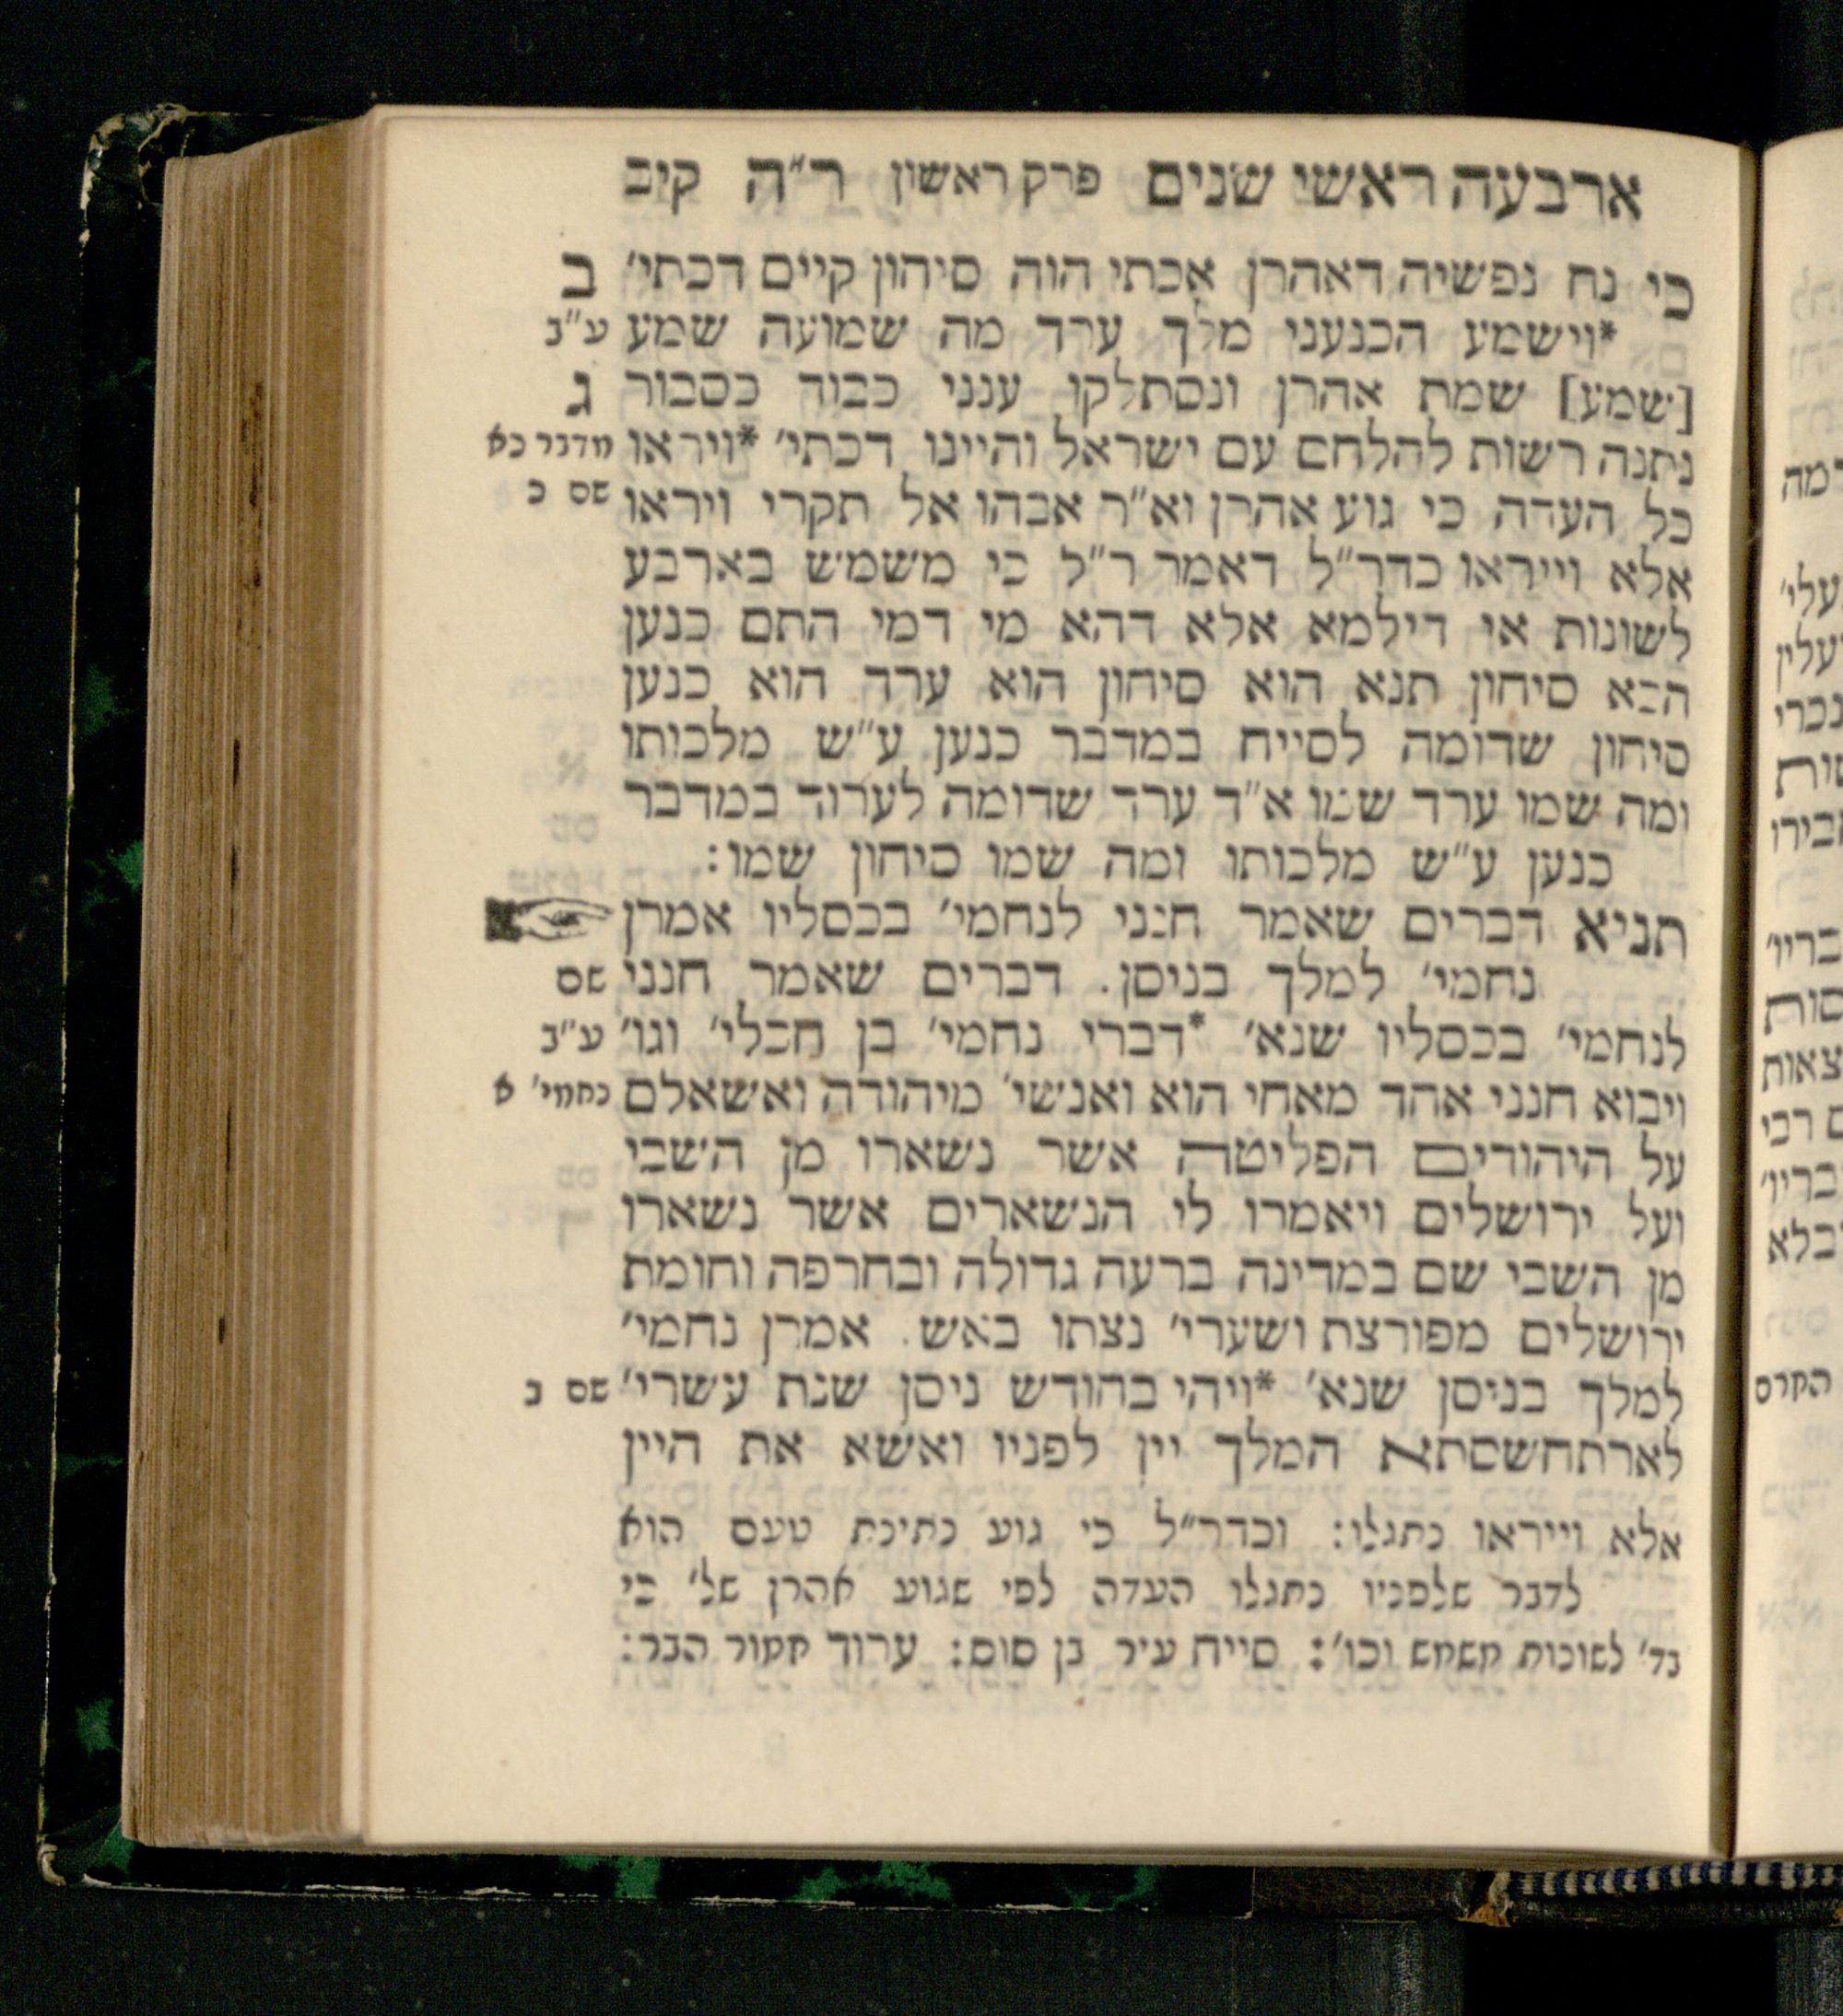 ארבעה ראשי שנים פרק ראשון ר"ה קיב
כי נח נפשיה דאהרן אכתי הוה סיחון קיים דכתי' ב
*וישמע הכנעני מלך ערד מה שמועה שמע ע"ב
[שמע] שמת אהרן ונסתלקו ענני כבוד כסבור ג
נתנה רשות להלחם עם ישראל והיינו דכתי' *ויראו מדבר כא
כל העדה כי גוע אהרן וא"ר אבהו אל תקרי ויראו שם כ
אלא וייראו כדר"ל דאמר ר"ל כי משמש בארבע
לשונות אי דילמא אלא דהא מי דמי התם כנען
הכא סיחון תנא הוא סיחון הוא ערד הוא כנען
סיחון שדומה לסייח במדבר כנען ע"ש מלכותו
ומה שמו ערד שמו א"ד ערד שדומה לערוד במדבר
כנען ע"ש מלכותו ומה שמו סיחון שמו:
תניא דברים שאמר חנני לנחמי' בכסליו אמרן
נחמי' למלך בניסן. דברים שאמר חנני שם
לנחמי' בכסליו שנא' *דברי נחמי' בן חכלי' וגו' ע"ב
ויבוא חנני אחד מאחי הוא ואנשי' מיהודה ואשאלם נחמי' א
על היהודים הפליטה אשר נשארו מן השבי
ועל ירושלים ויאמרו לי הנשארים אשר נשארו
מן השבי שם במדינה ברעה גדולה ובחרפה וחומת
ירושלים מפורצת ושערי' נצתו באש. אמרן נחמי'
למלך בניסן שנא' *ויהי בחודש ניסן שנת עשרי' שם ב
לארתחשסתא המלך יין לפניו ואשא את היין
אלא וייראו נתגלו: וכדר"ל כי גוע נתינת טעם הוא
לדבר שלפניו נתגלו העדה לפי שגוע אהרן של' כי
בד' לשונות משמש וכו': סייח עיר בן סוס: ערוד חמור הבר: